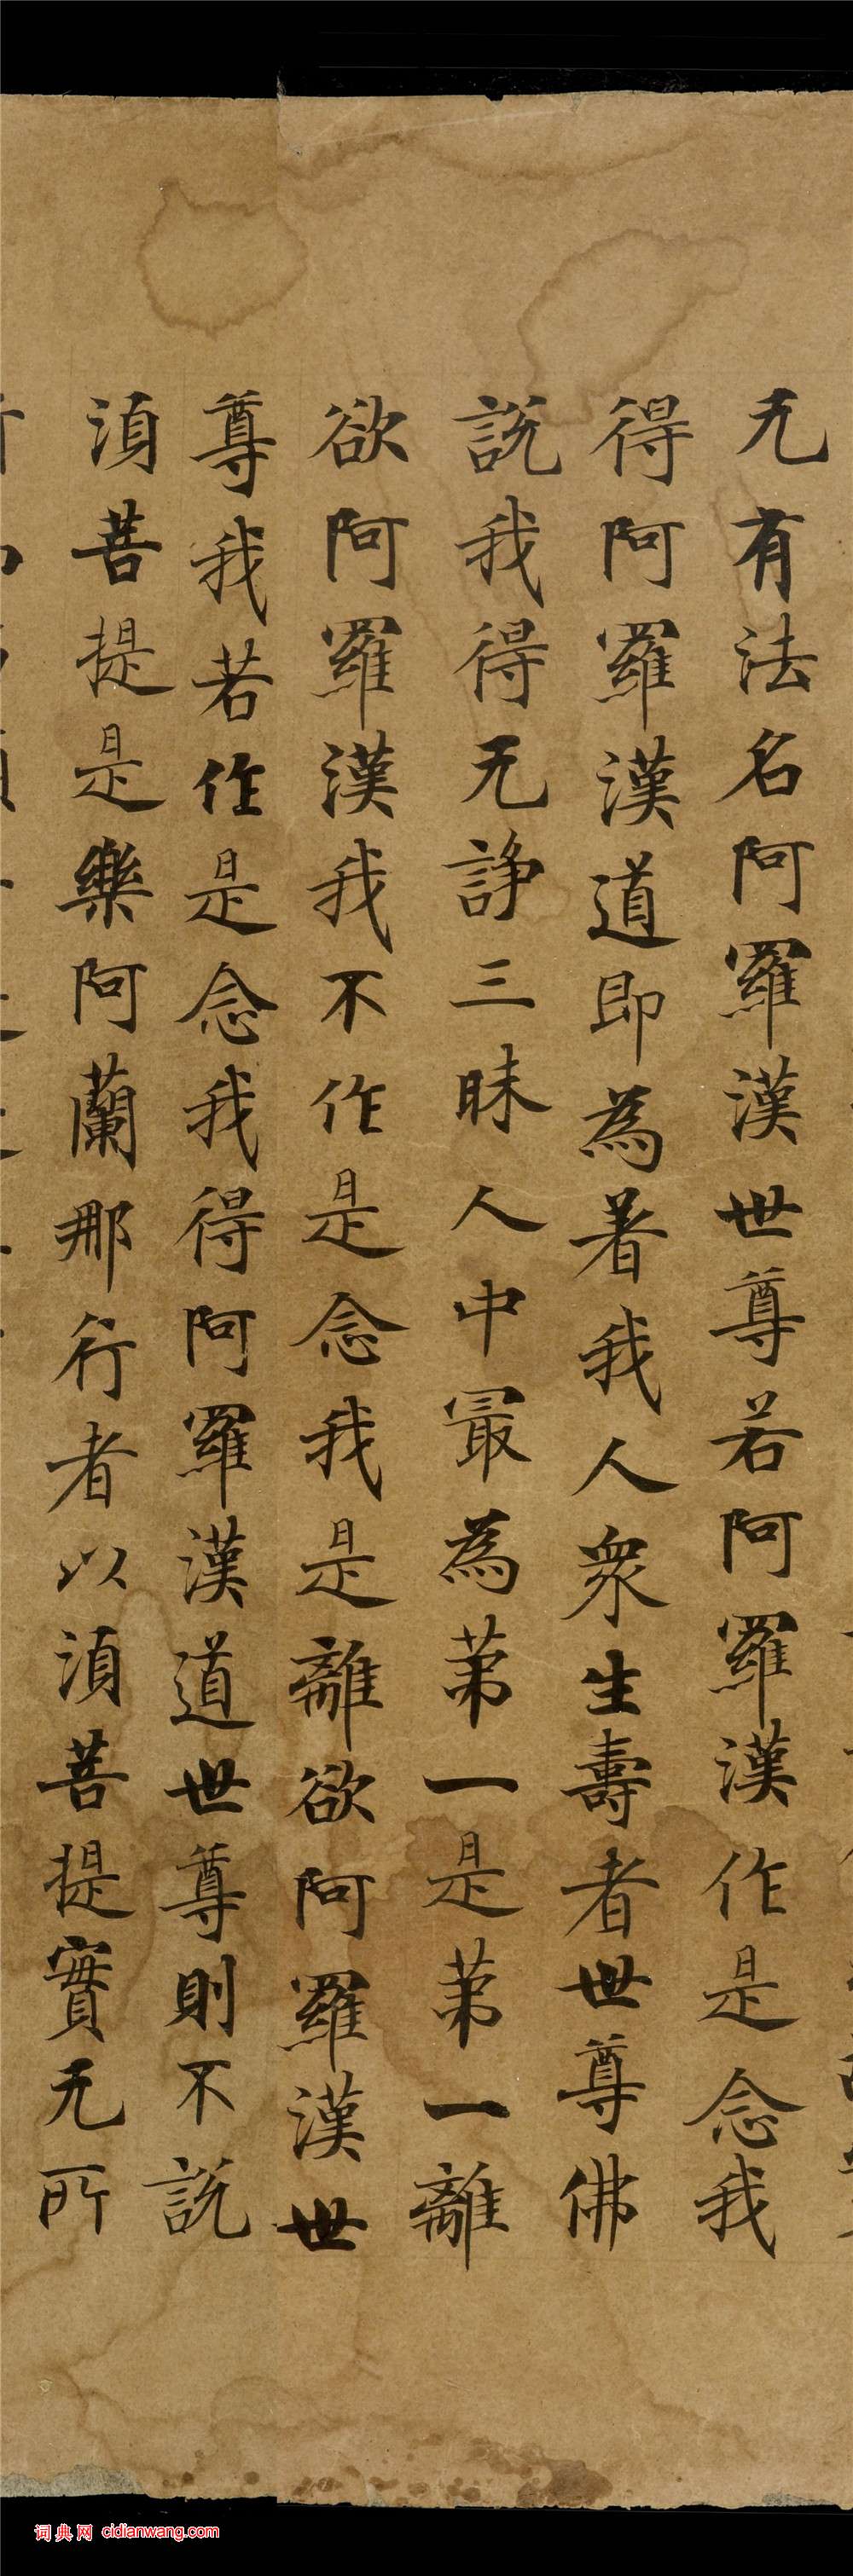 无有法名阿羅漢世尊若阿羅漢作是念我
得阿羅漢道即為著我人衆生壽者世尊佛
說我得无諍三昧人中最為第一是第一離
欲阿羅漢我不作是念我是離欲阿羅漢世
尊我若作是念我得阿羅漢道世尊則不說
湏菩提是樂阿蘭那行者以湏菩提實无所
词典网 cidianwang.com